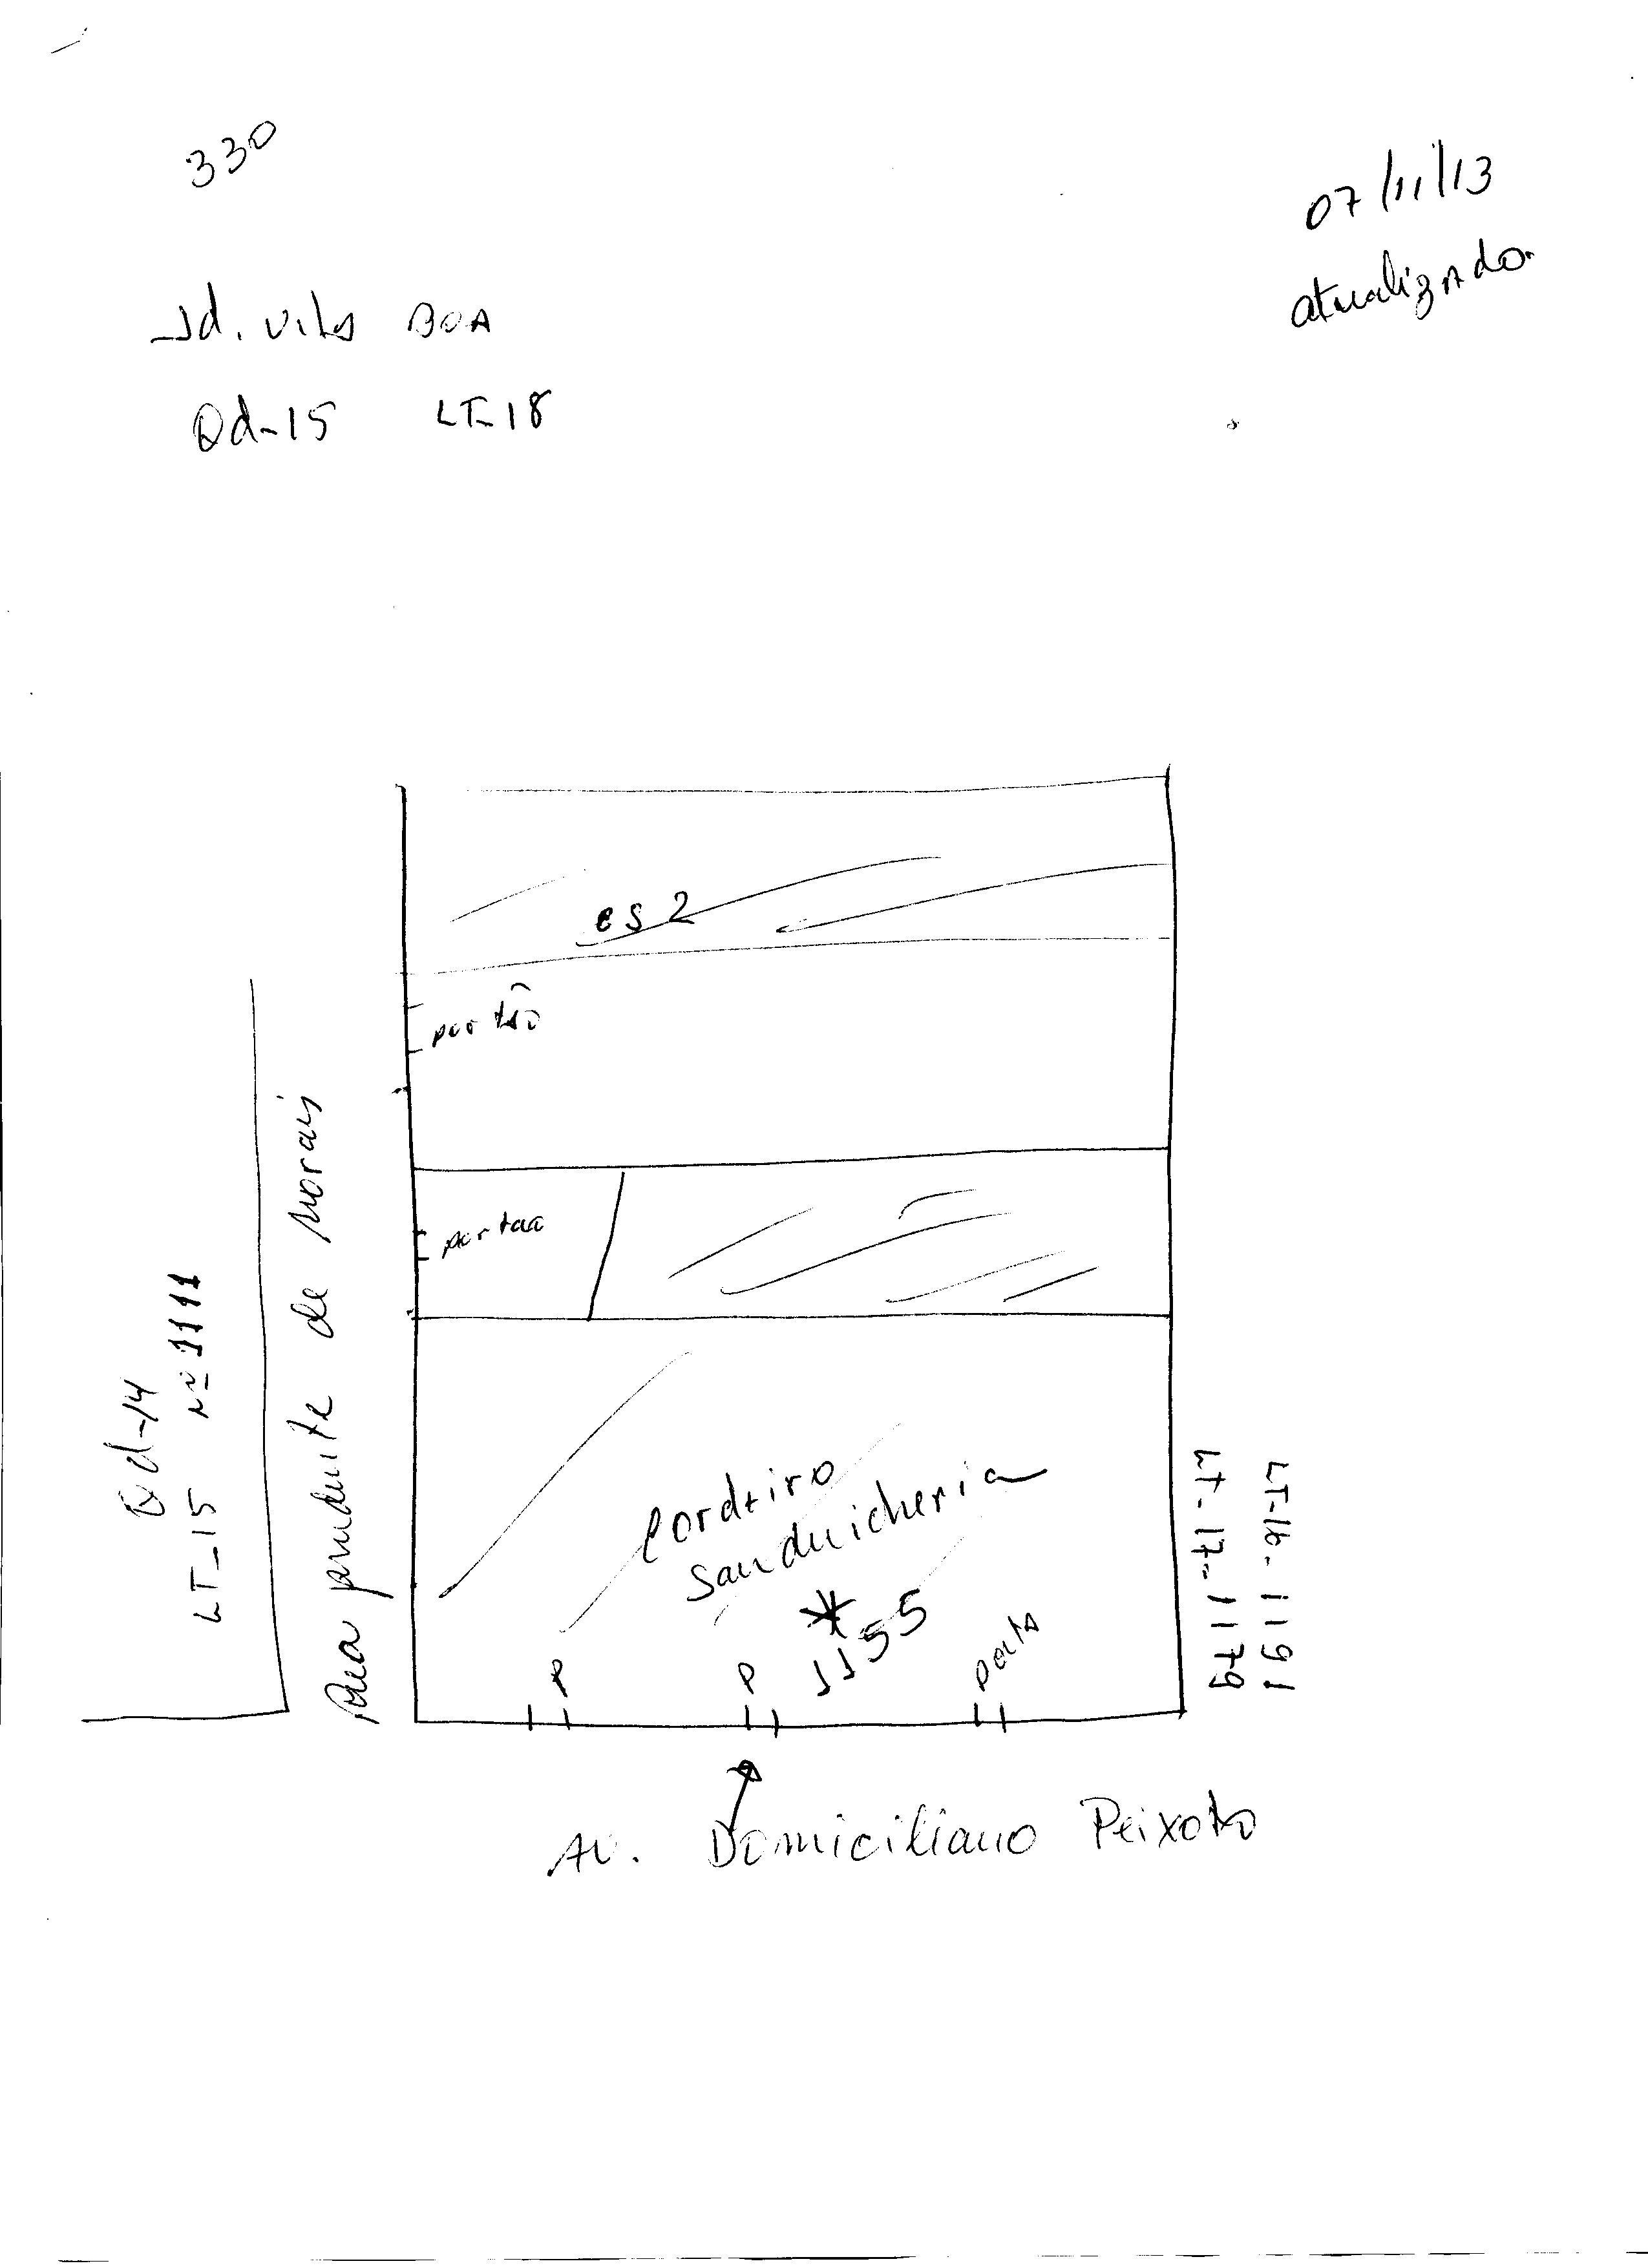 330
07/11/13
atualizado.
Jd. Vila BOA
Qd-15 LT-18
es 2
portão
portão
Rua prudente de Morais
Qd-14
LT-15 Nº 1111
Cordeiro
Sanduicheria
*
1155
P
P
porta
LT-17-1179
LT-16-1191
Av. Domiciliano Peixoto